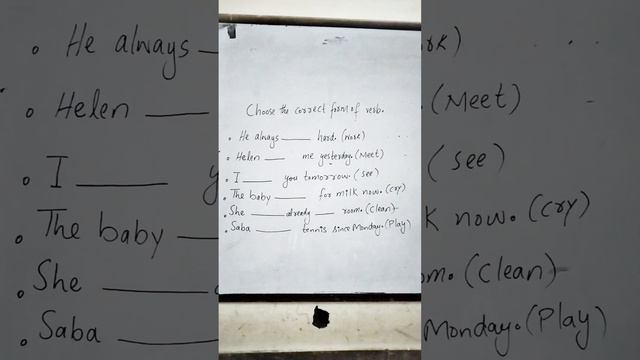 Choose the correct form of verb.
He always ______ hard. (Work)
Helen ______ me yesterday. (Meet)
I ______ you tomorrow. (see)
The baby ______ for milk now. (Cry)
She ______ already ______ room. (Clean)
Saba ______ tennis since Monday. (Play)